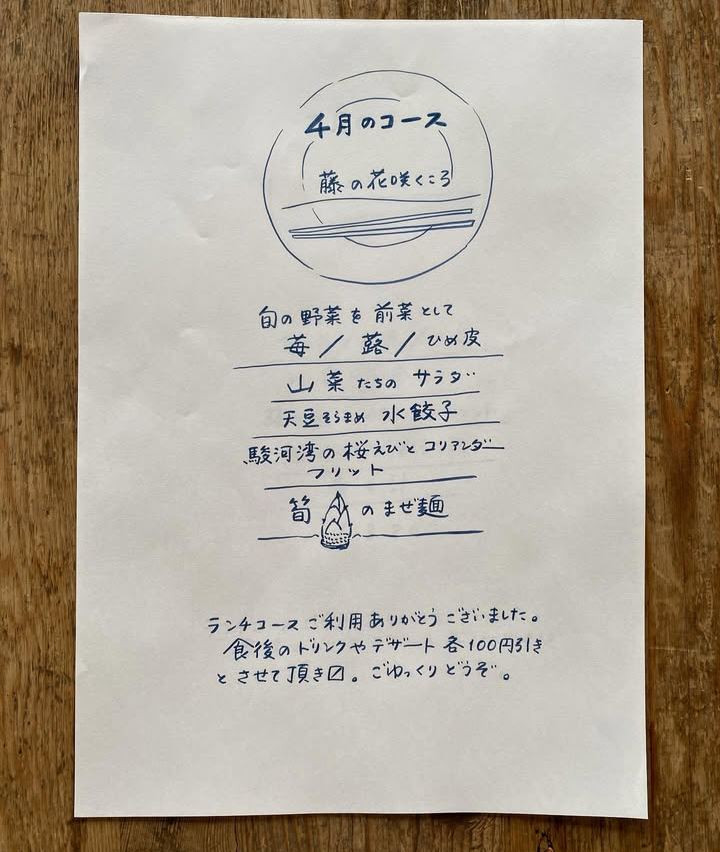 4月のコース
藤の花咲くころ
旬の野菜を前菜として
苺/蕗/ひめ皮
山菜たちのサラダ
天豆そらまめ 水餃子
駿河湾の桜えびとコリアンダー
フリット
筍のまぜ麺
ランチコースご利用ありがとうございました。
食後のドリンクやデザート各100円引き
とさせて頂き〼。ごゆっくりどうぞ。